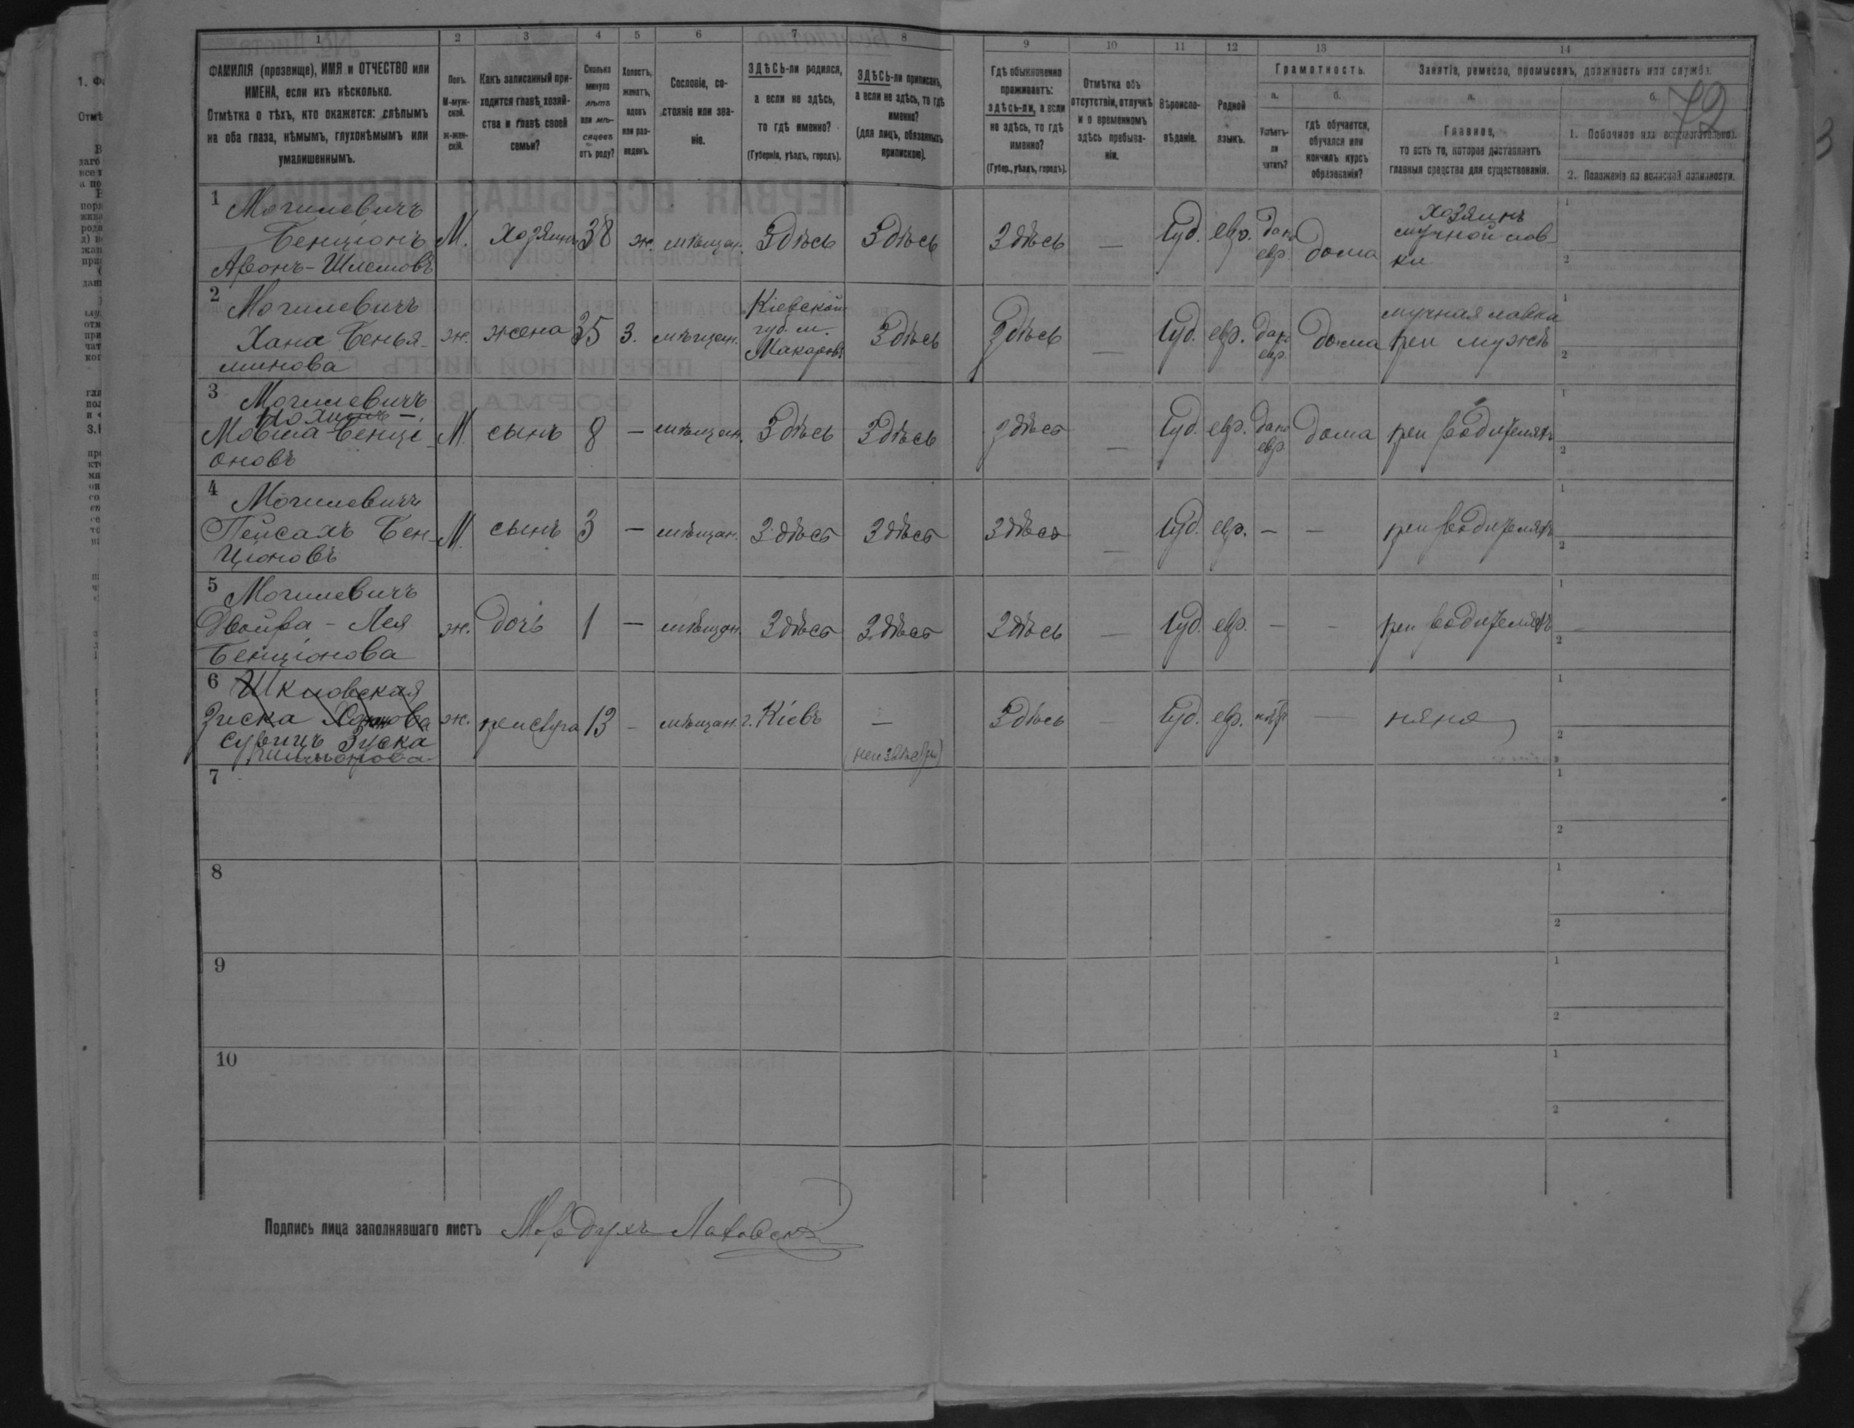 72
1 2 3 4 5 6 7 8 9 10 11 12 13 14
ФАМИЛІЯ (прозвище), ИМЯ и ОТЧЕСТВО или
ИМЕНА, если ихъ нѣсколько.
Отмѣтка о тѣхъ, кто окажется: слѣпымъ
на оба глаза, нѣмымъ, глухонѣмымъ или
умалишеннымъ.
Полъ.
М-муж-
ской.
Ж-жен-
скій.
Какъ записанный при-
ходится главѣ хозяй-
ства и главѣ своей
семьи?
Сколько
минуло
лѣтъ
или мѣ-
сяцевъ
отъ роду?
Холостъ,
женатъ,
вдовъ
или раз-
веденъ.
Сословіе, со-
стояніе или зва-
ніе.
ЗДѢСЬ-ли родился,
а если не здѣсь,
то гдѣ именно?
(Губернія, уѣздъ, городъ).
ЗДѢСЬ-ли приписанъ,
а если не здѣсь, то гдѣ
именно?
(для лицъ, обязанныхъ
припискою).
Гдѣ обыкновенно
проживаетъ:
здѣсь-ли, а если
не здѣсь, то гдѣ
именно?
(Губер., уѣздъ, городъ).
Отмѣтка объ
отсутствіи, отлучкѣ
и о временномъ
здѣсь пребыва-
ніи.
Вѣроиспо-
вѣданіе.
Родной
языкъ.
Грамотность.
а.
Умѣетъ-
ли
читать?
б.
гдѣ обучается,
обучался или
кончилъ курсъ
образованія?
Занятіе, ремесло, промыселъ, должность или служба.
а.
Главное,
то есть то, которое доставляетъ
главныя средства для существованія.
б.
1. Побочное или вспомогательное.
2. Положеніе по воинской повинности.
1 Могилевичъ
Бенціонъ
Аронъ-Шлемовъ
М. хозяинъ 38 ж. мѣщан. Здѣсь Здѣсь Здѣсь — Іуд. евр. да по
евр дома
хозяинъ
мучной лав
ки
2 Могилевичъ
Хана Бенья-
минова
ж. жена 35 З. мѣщан.
Кіевской
губ. м.
Макаровъ
Здѣсь Здѣсь — Іуд. евр. да по
евр. дома
мучная лавка
при мужѣ
3 Могилевичъ
Мовша Бенці-
оновъ
М. сынъ 8 — мѣщан. Здѣсь Здѣсь здѣсь — Іуд. евр. да по
евр дома при родителяхъ
4 Могилевичъ
Пейсахъ Бен-
ціоновъ
М. сынъ 3 — мѣщан. Здѣсь Здѣсь Здѣсь — Іуд. евр. — — при родителяхъ
5 Могилевичъ
Двойра-Лея
Бенціонова
ж. дочь 1 — мѣщан. Здѣсь Здѣсь Здѣсь — Іуд. евр. — — при родителяхъ
6 Шкловская
Зиска
Зуска
ж. прислуга 13 — мѣщан. г. Кіевъ — Здѣсь — Іуд. евр. — няня
7
8
9
10
Подпись лица заполнявшаго листъ Мордухъ